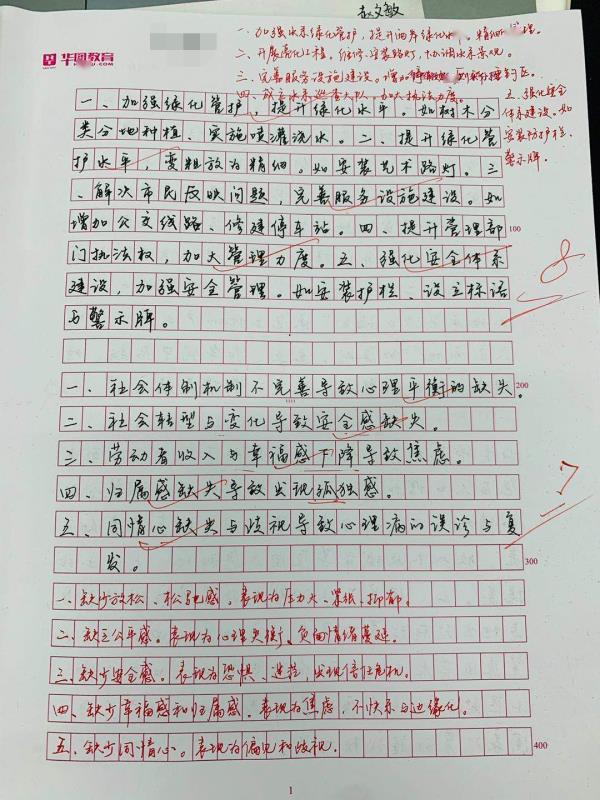 赵文敏
华图教育
一、加强水系绿化管护，提升两岸绿化水、精细管理。
二、开展亮化工植，维修、安装路灯，协调水系景观。
三、完善服务设施建设。增加
四、成立水系巡查大队，加大执法力度。
五、强化安全
体系建设。如
安装防护栏、
警示牌。
一、加强绿化管护，提升绿化水平。如树木分
类分地种植、实施喷灌浇水。二、提升绿化管
护水平，变粗放为精细。如安装艺术路灯。三
、解决市民反映问题，完善服务设施建设。如
增加公交线路、修建停车站。四、提升管理部
100
门执法权，加大管理力度。五、强化安全体系
建设，加强安全管理。如安装护栏、设立标语
与警示牌。
8
一、社会体制机制不完善导致心理平衡的缺失。
200
二、社会转型与变化导致安全感缺失。
三、劳动者收入与幸福感下降导致焦虑。
四、归属感缺失导致出现孤独感。
7
五、同情心缺失与歧视导致心理病的误诊与复
发。
300
一、缺少放松、松弛感，表现为压力大、紧张、抑郁。
二、缺乏公平感。表现为心理失衡、负面情绪蔓延。
三、缺少安全感。表现为恐惧、迷茫，出现信任危机。
四、缺少幸福感和归属感。表现为焦虑，不快乐与边缘化。
五、缺少同情心。表现为偏见和歧视。
400
1